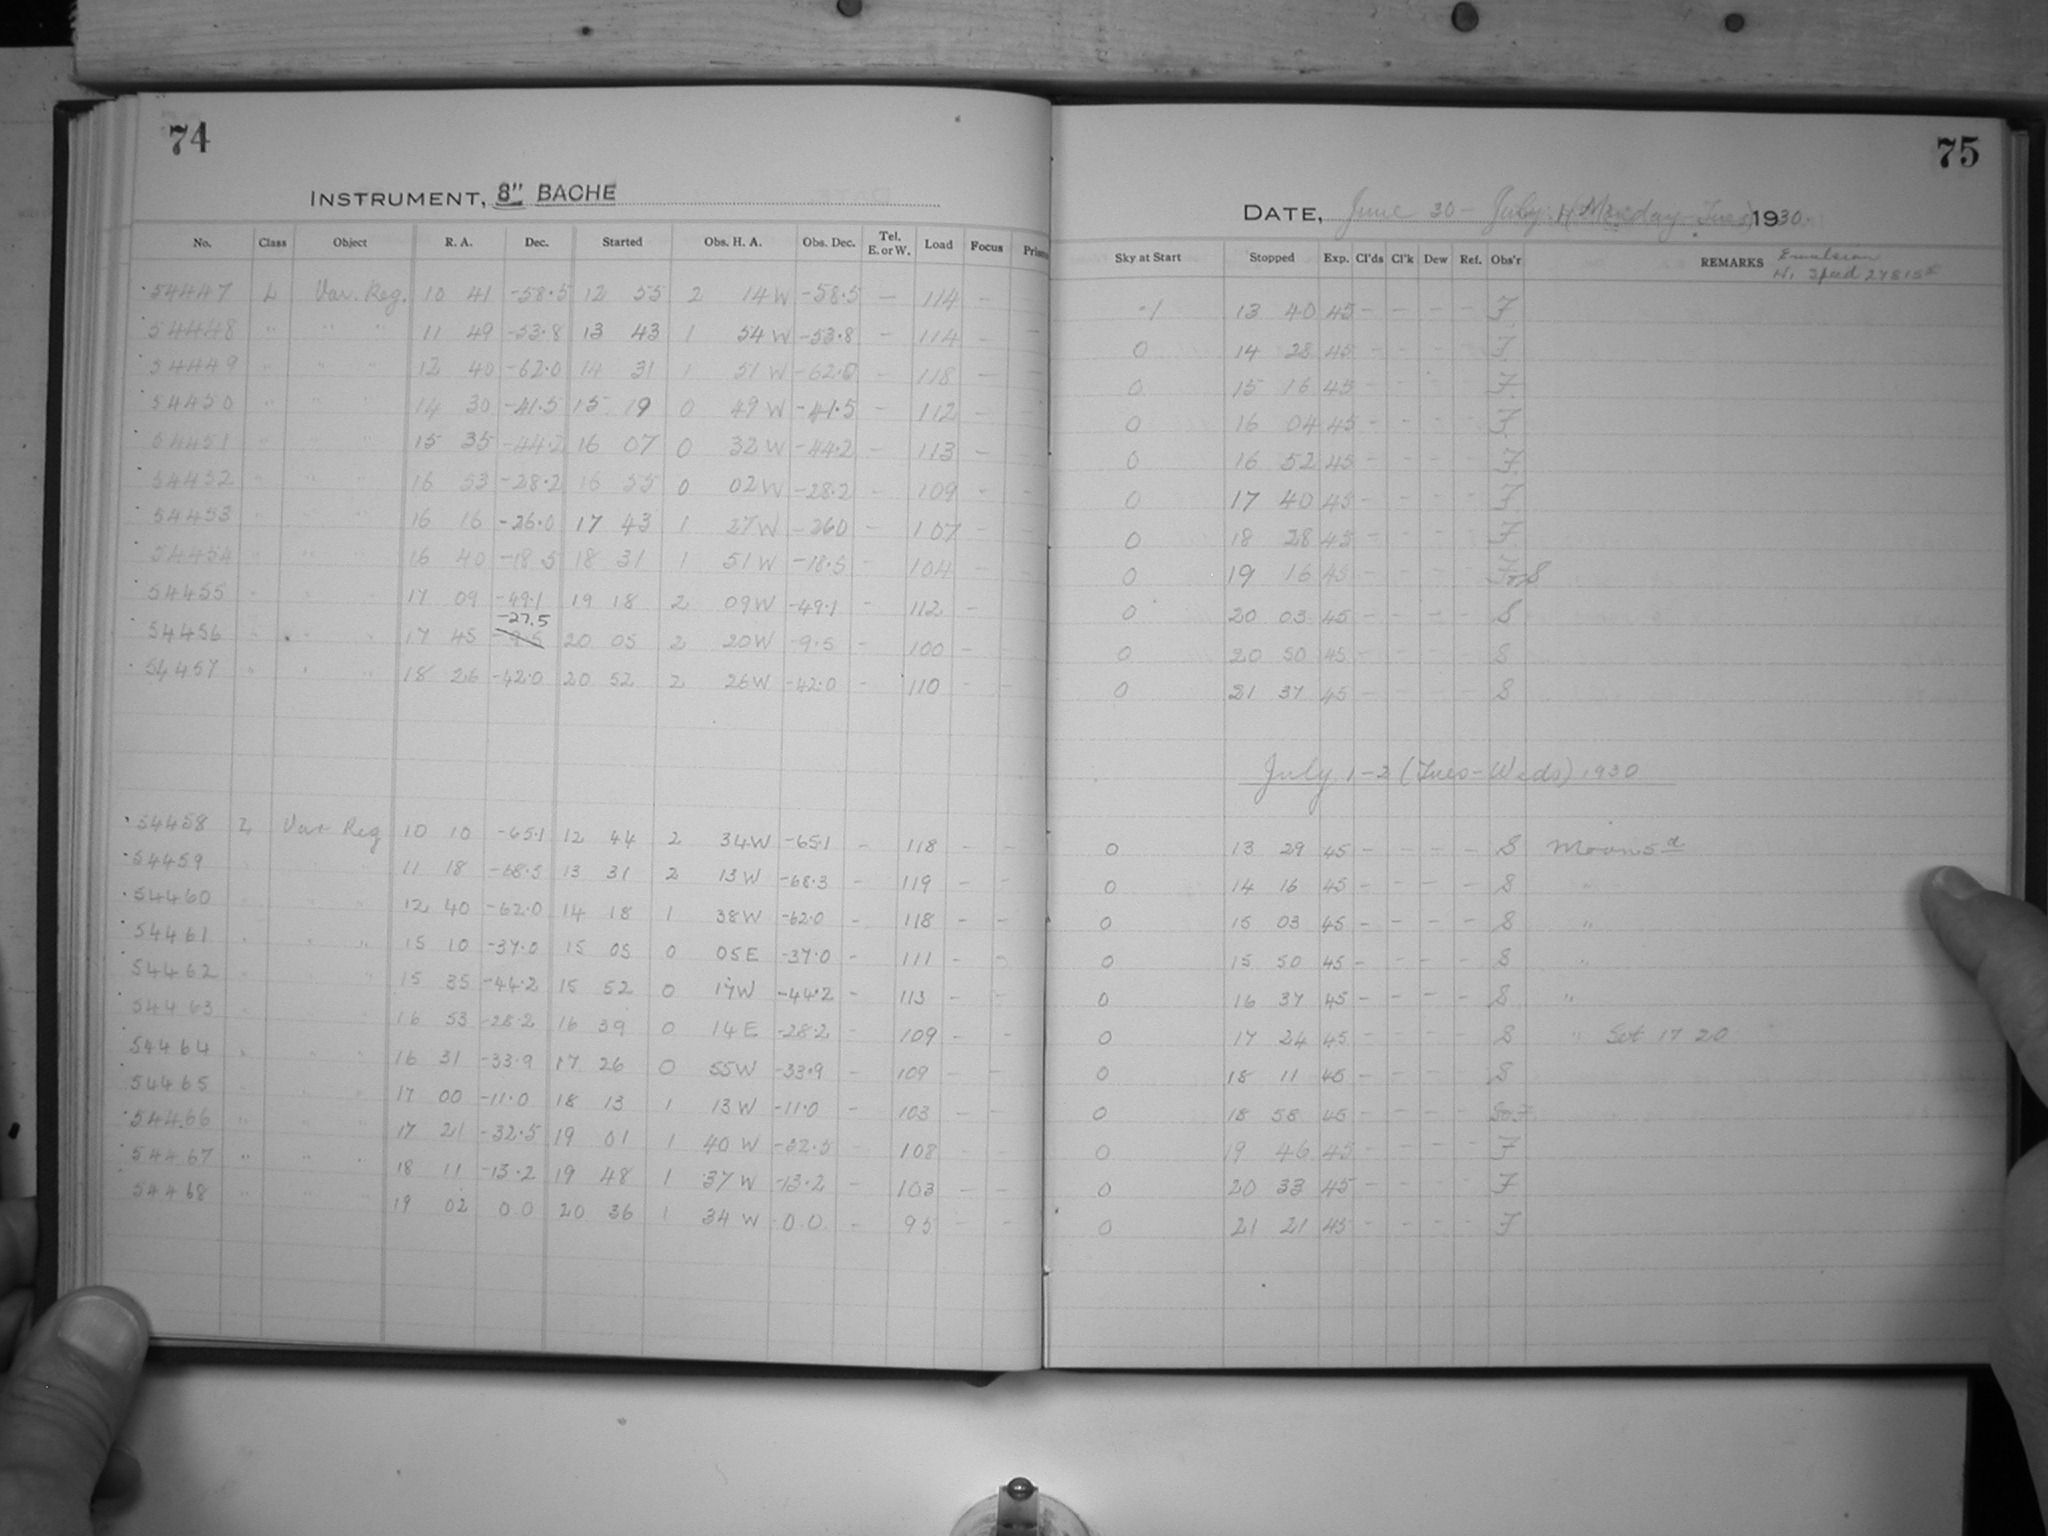 74
INSTRUMENT, 8" BACHE
No. Class Object R. A. Dec. Started Obs. H. A. Obs. Dec. Tel. E. or W. Load Focus
54447 L Var. Reg. 10 41 -58.5 12 55 2 14 W -58.5 — 114 —
54448 " " " 11 49 -53.8 13 43 1 54 W -53.8 — 114 — —
54449 " " " 12 40 -62.0 14 31 1 51 W -62.0 — 118 — —
54450 " " " 14 30 -41.5 15 19 0 49 W -41.5 — 112 — —
54451 " " " 15 35 -44.2 16 07 0 32 W -44.2 — 113 — —
54452 " " " 16 53 -28.2 16 55 0 02 W -28.2 — 109 — —
54453 " " " 16 16 -26.0 17 43 1 27 W -26.0 — 107 — —
54454 " " " 16 40 -18.5 18 31 1 51 W -18.5 — 104 — —
54455 " " " 17 09 -49.1 19 18 2 09 W -49.1 — 112 —
-27.5
54456 " " 17 45 -9.5 20 05 2 20 W -9.5 — 100 — —
54457 " " " 18 26 -42.0 20 52 2 26 W -42.0 — 110 — —
54458 L Var Reg 10 10 -65.1 12 44 2 34 W -65.1 — 118 — —
54459 11 18 -68.3 13 31 2 13 W -68.3 — 119 — —
54460 12 40 -62.0 14 18 1 38 W -62.0 — 118 — —
54461 " " " 15 10 -37.0 15 05 0 05 E -37.0 — 111 —
54462 " " 15 35 -44.2 15 52 0 17 W -44.2 — 113 — —
54463 16 53 -28.2 16 39 0 14 E -28.2 — 109 — —
54464 " " " 16 31 -33.9 17 26 0 55 W -33.9 — 109 — —
54465 " " " 17 00 -11.0 18 13 1 13 W -11.0 — 103 — —
54466 " " " 17 21 -32.5 19 01 1 40 W -32.5 — 108 — —
54467 " " " 18 11 -13.2 19 48 1 37 W -13.2 — 103 — —
54468 " " " 19 02 0.0 20 36 1 34 W 0.0 — 95 — —
75
DATE, June 30 - July 1, (Monday-Tues) 1930.
Sky at Start Stopped Exp. Cl'ds Cl'k Dew Ref. Obs'r REMARKS Emulsion
Hi Speed
.1 13 40 45 — — — — F.
0 14 28 45 — — — — F.
0 15 16 45 — — — — F.
0 16 04 45 — — — — F.
0 16 52 45 — — — — F.
0 17 40 45 — — — — F.
0 18 28 45 — — — — F.
0 19 16 45 — — — — F to S
0 20 03 45 — — — — S
0 20 50 45 — — — — S
0 21 37 45 — — — — S
July 1-2 (Tues-Weds) 1930
0 13 29 45 — — — — S Moon 5d
0 14 16 45 — — — — S "
0 15 03 45 — — — — S "
0 15 50 45 — — — — S "
0 16 37 45 — — — — S "
0 17 24 45 — — — — S " Set 17 20
0 18 11 45 — — — — S
0 18 58 45 — — — — S to F
0 19 46 45 — — — — F
0 20 33 45 — — — — F
0 21 21 45 — — — — F